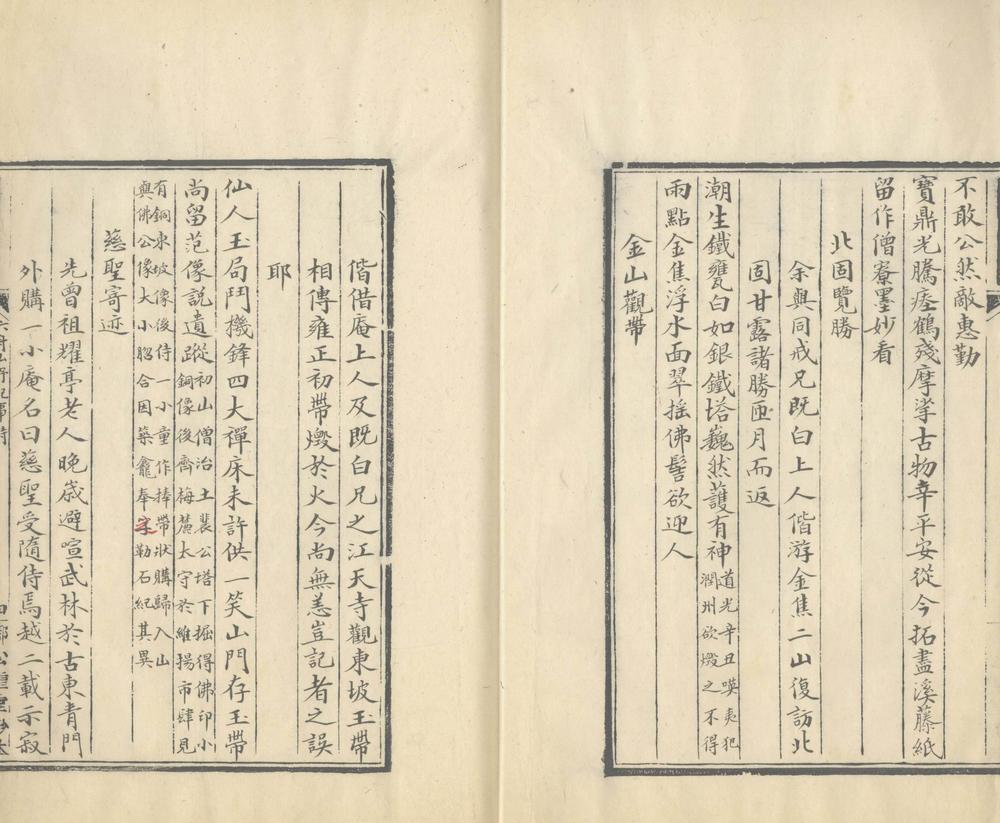 不敢公然敵惠勤
寶鼎光騰瘞鶴殘摩挲古物幸平安從今拓盡溪藤紙
留作僧寮墨妙看
北固覽勝
余與同戒兄既白上人偕游金焦二山復訪北
固甘露諸勝匝月而返
潮生鐵甕白如銀鐵塔巍然護有神道光辛丑暎夷犯
潤州欲燬之不得
雨點金焦浮水面翠摇佛髻欲迎人
金山觀帶
偕借庵上人及既白兄之江天寺觀東坡玉帶
相傳雍正初帶燬於火今尚無恙豈記者之誤
耶
仙人玉局鬥機鋒四大禪床未許供一笑山門存玉帶
尚留范像説遺蹤初山僧治土裴公塔下掘得佛印小
銅像後齊梅麓太守於維揚市肆見
有銅東坡像後侍一小童作捧帶狀購歸入山
與佛公像大小脗合因築龕奉宗勒石紀其異
慈聖寄迹
先曾祖耀亭老人晚歲避喧武林於古東青門
外購一小庵名曰慈聖受隨侍焉越二載示寂